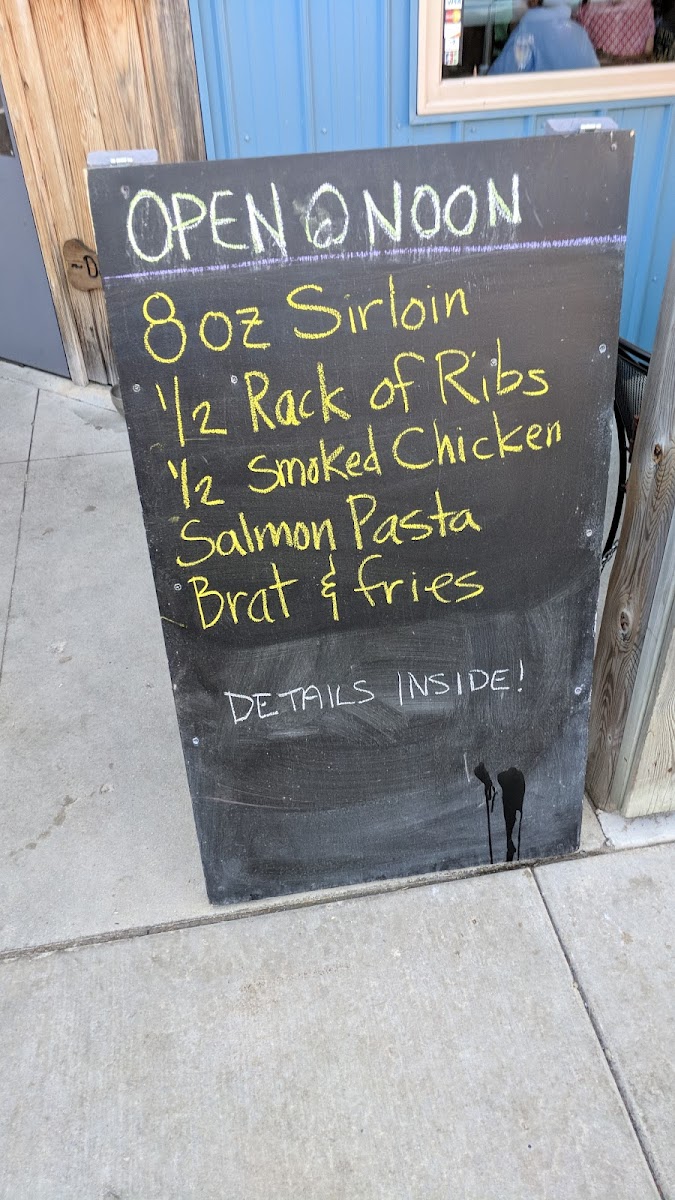 OPEN @ NOON
8 oz Sirloin
1/2 Rack of Ribs
1/2 Smoked Chicken
Salmon Pasta
Brat & fries
DETAILS INSIDE!